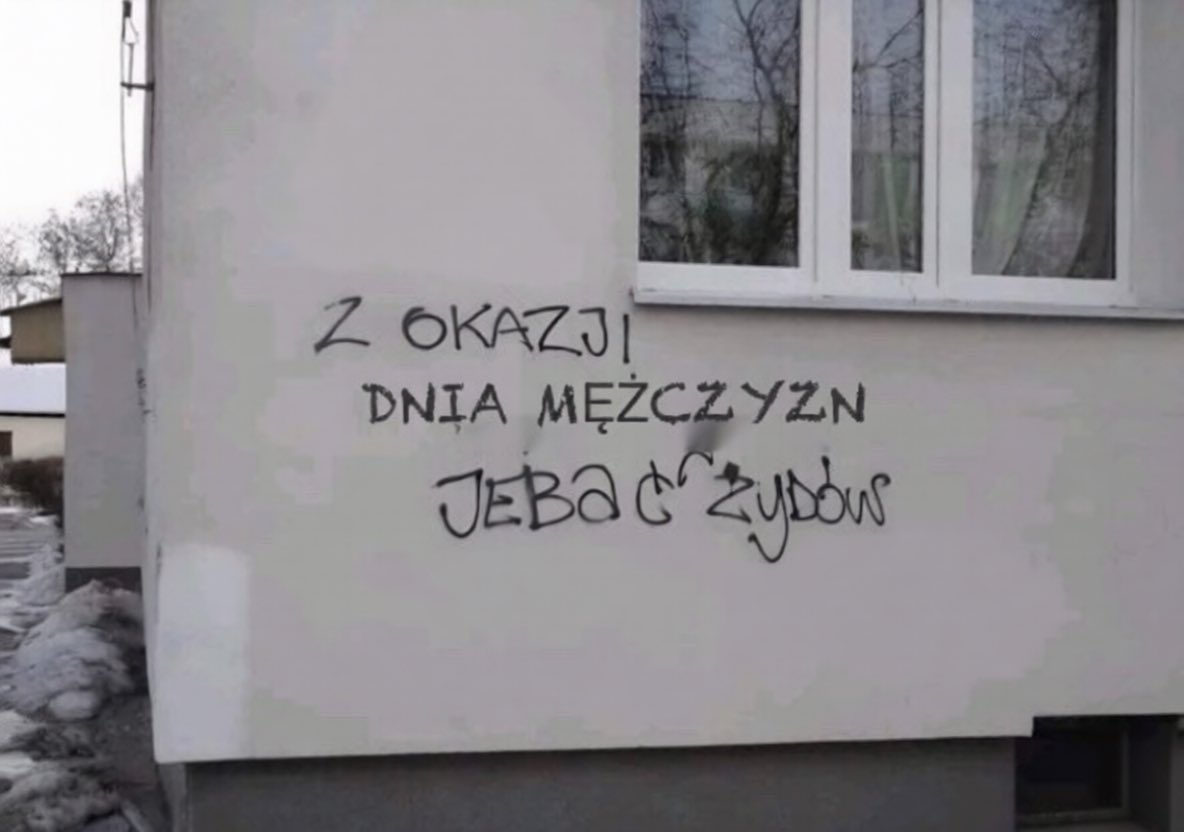 Z OKAZJI
DNIA MĘŻCZYZN
JEBAĆ ŻYDÓW